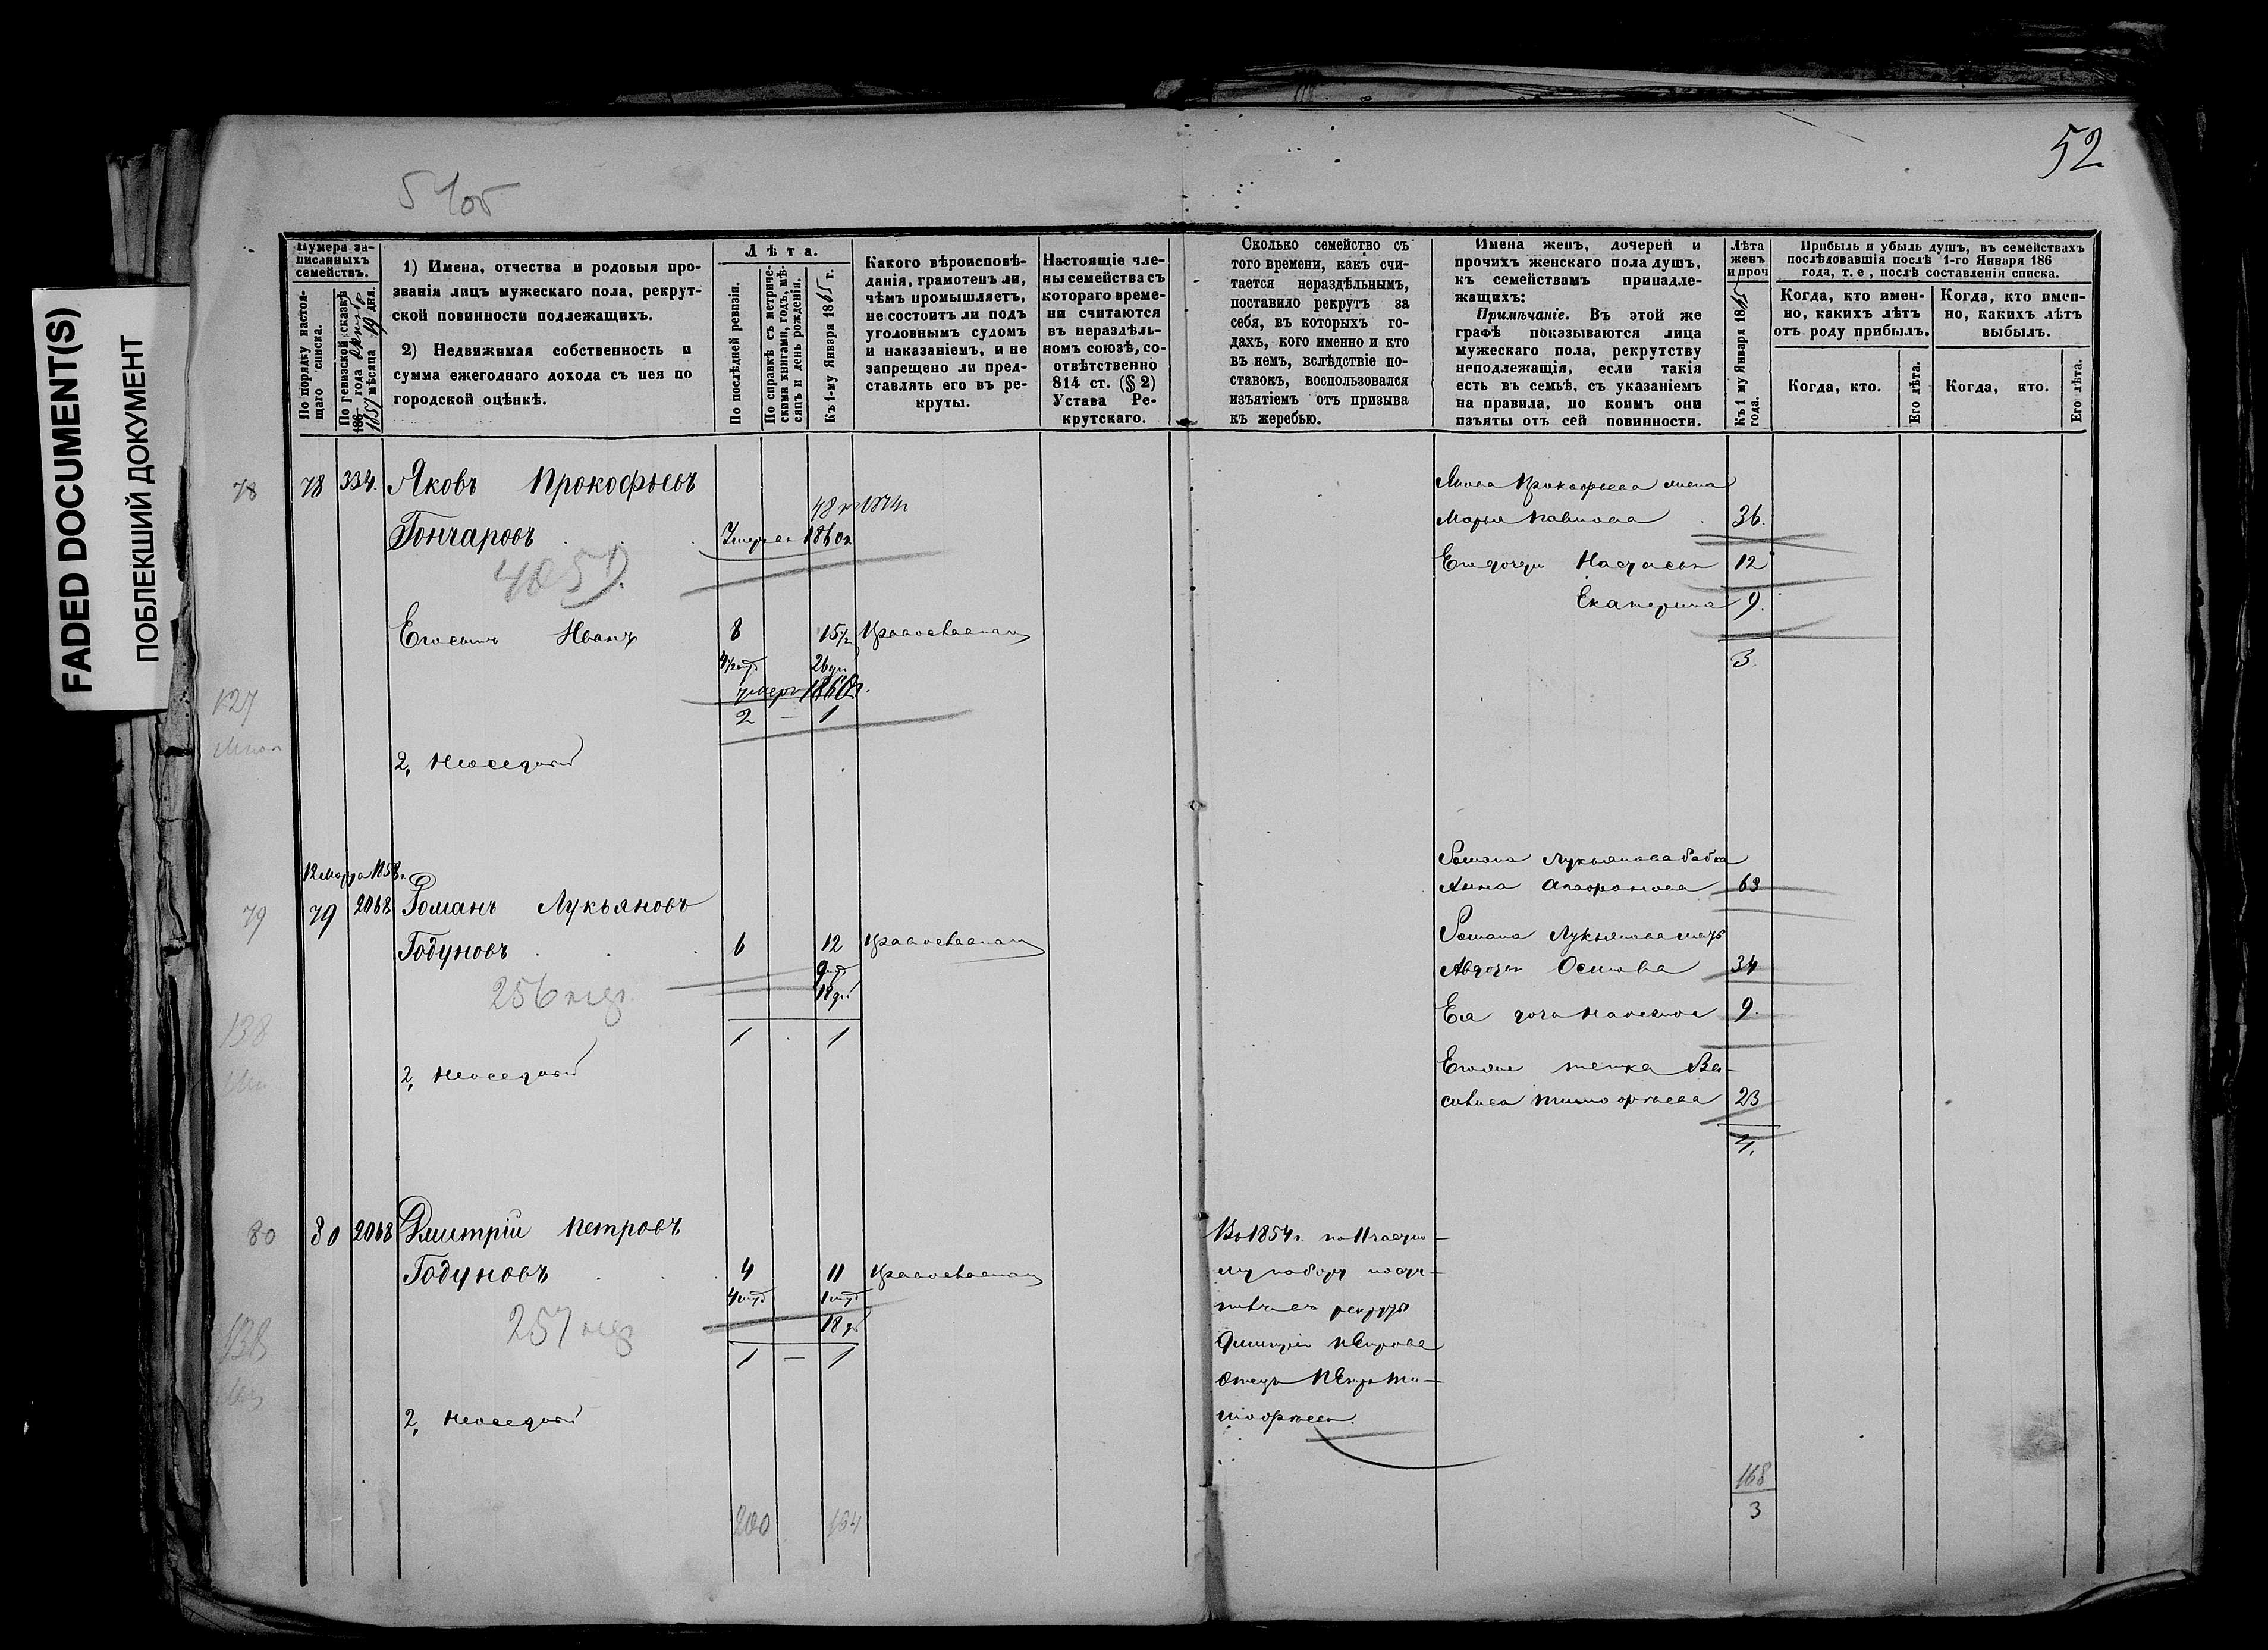 52
51об
FADED DOCUMENT(S)
ПОБЛЕКШИЙ ДОКУМЕНТ
Нумера за-
писанныхъ
семействъ.
По порядку настоя-
щаго списка.
По ревизской сказкѣ
186 года
1857 мѣсяца 19 дня.
1) Имена, отчества и родовыя про-
званія лицъ мужескаго пола, рекрут-
ской повинности подлежащихъ.
2) Недвижимая собственность и
сумма ежегоднаго дохода съ нея по
городской оцѣнкѣ.
Лѣта.
По послѣдней ревизіи.
По справкѣ съ метриче-
скими книгами, годъ, мѣ-
сяцъ и день рожденія.
Къ 1-му Января 1865 г.
Какого вѣроисповѣ-
данія, грамотенъ ли,
чѣмъ промышляетъ,
не состоитъ ли подъ
уголовнымъ судомъ
и наказаніемъ, и не
запрещено ли пред-
ставлять его въ ре-
круты.
Настоящіе чле-
ны семейства съ
котораго време-
ни считаются
въ нераздѣль-
номъ союзѣ, со-
отвѣтственно
814 ст. (§ 2)
Устава Ре-
крутскаго.
Сколько семейство съ
того времени, какъ счи-
тается нераздѣльнымъ,
поставило рекрутъ за
себя, въ которыхъ го-
дахъ, кого именно и кто
въ немъ, вслѣдствіе по-
ставокъ, воспользовался
изъятіемъ отъ призыва
къ жеребью.
Имена женъ, дочерей и
прочихъ женскаго пола душъ,
къ семействамъ принадле-
жащихъ:
Примѣчаніе. Въ этой же
графѣ показываются лица
мужескаго пола, рекрутству
неподлежащія, если такія
есть въ семьѣ, съ указаніемъ
на правила, по коимъ они
изъяты отъ сей повинности.
Лѣта
женъ
и проч
Къ 1 му Января 1865
года.
Прибыль и убыль душъ, въ семействахъ
послѣдовавшія послѣ 1-го Января 186
года, т. е, послѣ составленія списка.
Когда, кто имен-
но, какихъ лѣтъ
отъ роду прибылъ.
Когда, кто имен-
но, какихъ лѣтъ
выбылъ.
Когда, кто.
Его лѣта.
Когда, кто.
Его лѣта.
78 78 334. Яковъ Прокофьевъ
Гончаровъ 1860г.
Якова Прокофьева жена
Марья Павлова 36.
Его дочери Настасья 12
Екатерина 9.
3.
Его сынъ Иванъ 8 15 Православнаго
умеръ 1860г.
2 — 1
127
2, Неоседлый
12 Марта 1858г.
79 79 2068 Романъ Лукьяновъ
Годуновъ 6 12 Православнаго
18
256
1 1
138
2, Неоседлый
Романа Лукьянова бабка
Анна 63
Романа Лукьянова мать
Авдотья Осипова 34
Ея дочь 9.
Его же тетка Ва-
силиса Тимофеева 23
4.
80 80 2068 Дмитрій Петровъ
Годуновъ 4 11 Православнаго
18
257
1 — 1
138
2, Неоседлый
Въ 1854г. по 11 частно-
му набору посту-
пилъ въ рекруты
Дмитрія Петрова
отецъ Петръ Ти-
мофеевъ.
200 164
168
3